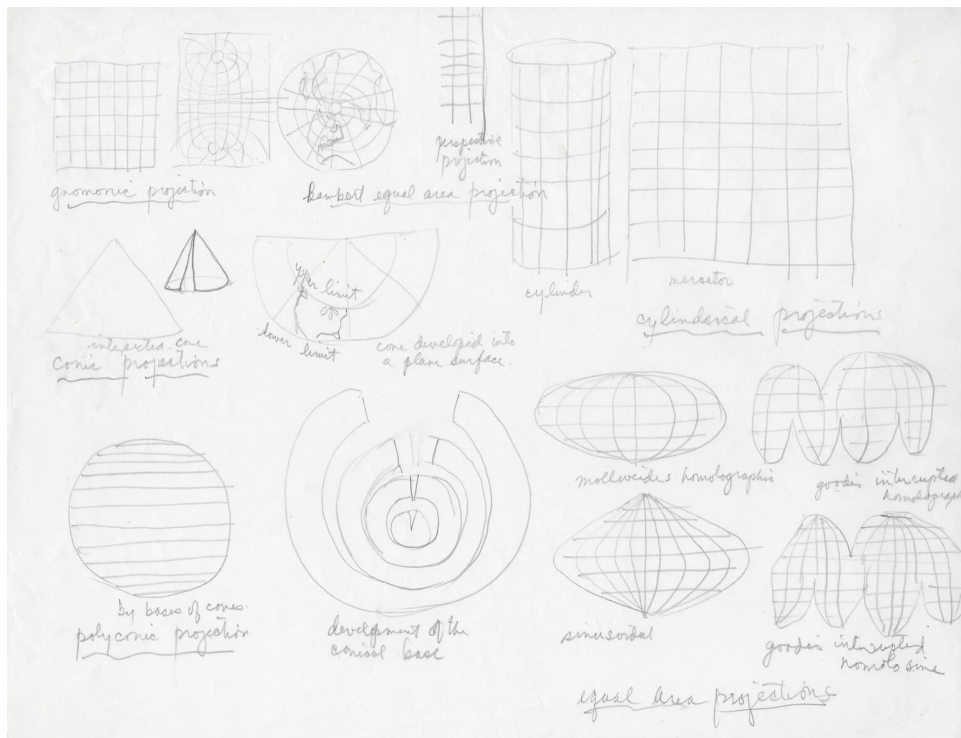 perspective
projection
gnomonic projection
Lambert equal area projection
cylinder
mercator
cylindarical projections
upper limit
of
lower limit
cone developed into
a plane surface.
intersected cone
conic projections
mollweides homolographic
goodes interrupted
homolograph
by bases of cones.
polyconic projection
development of the
conical base
sinusoidal
goodes interrupted
homolosine
equal area projections